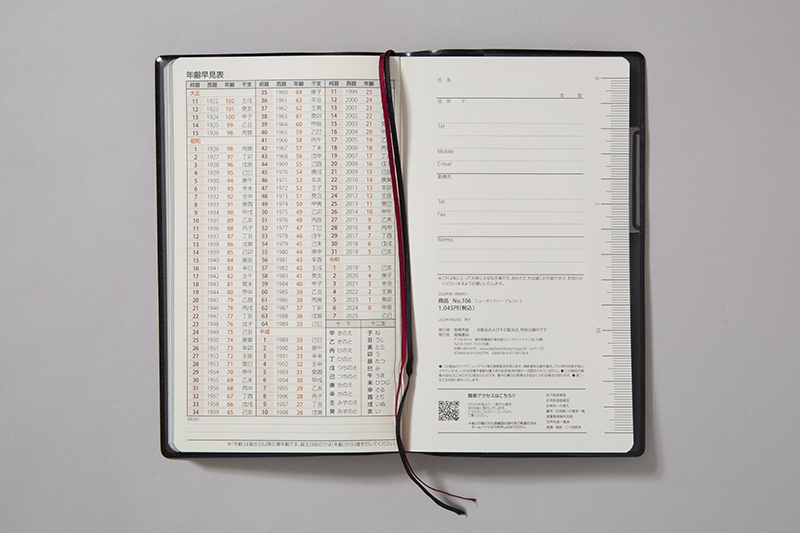 年齢早見表
邦暦 西暦 年齢 干支
大正
11 1922 102 壬戌
12 1923 101 癸亥
13 1924 100 甲子
14 1925 99 乙丑
15 1926 98 丙寅
昭和
1 1926 98 丙寅
2 1927 97 丁卯
3 1928 96 戊辰
4 1929 95 己巳
5 1930 94 庚午
6 1931 93 辛未
7 1932 92 壬申
8 1933 91 癸酉
9 1934 90 甲戌
10 1935 89 乙亥
11 1936 88 丙子
12 1937 87 丁丑
13 1938 86 戊寅
14 1939 85 己卯
15 1940 84 庚辰
16 1941 83 辛巳
17 1942 82 壬午
18 1943 81 癸未
19 1944 80 甲申
20 1945 79 乙酉
21 1946 78 丙戌
22 1947 77 丁亥
23 1948 76 戊子
24 1949 75 己丑
25 1950 74 庚寅
26 1951 73 辛卯
27 1952 72 壬辰
28 1953 71 癸巳
29 1954 70 甲午
30 1955 69 乙未
31 1956 68 丙申
32 1957 67 丁酉
33 1958 66 戊戌
34 1959 65 己亥
MEMO
邦暦 西暦 年齢 干支
35 1960 64 庚子
36 1961 63 辛丑
37 1962 62 壬寅
38 1963 61 癸卯
39 1964 60 甲辰
40 1965 59 乙巳
41 1966 58 丙午
42 1967 57 丁未
43 1968 56 戊申
44 1969 55 己酉
45 1970 54 庚戌
46 1971 53 辛亥
47 1972 52 壬子
48 1973 51 癸丑
49 1974 50 甲寅
50 1975 49 乙卯
51 1976 48 丙辰
52 1977 47 丁巳
53 1978 46 戊午
54 1979 45 己未
55 1980 44 庚申
56 1981 43 辛酉
57 1982 42 壬戌
58 1983 41 癸亥
59 1984 40 甲子
60 1985 39 乙丑
61 1986 38 丙寅
62 1987 37 丁卯
63 1988 36 戊辰
64 1989 35 己巳
平成
1 1989 35 己巳
2 1990 34 庚午
3 1991 33 辛未
4 1992 32 壬申
5 1993 31 癸酉
6 1994 30 甲戌
7 1995 29 乙亥
8 1996 28 丙子
9 1997 27 丁丑
10 1998 26 戊寅
邦暦 西暦 年齢
11 1999 25
12 2000 24
13 2001 23
14 2002 22
15 2003 21
16 2004 20
17 2005 19
18 2006 18
19 2007 17
20 2008 16
21 2009 15
22 2010 14 庚寅
23 2011 13 辛卯
24 2012 12 壬辰
25 2013 11 癸巳
26 2014 10 甲午
27 2015 9 乙未
28 2016 8 丙申
29 2017 7 丁酉
30 2018 6 戊戌
31 2019 5 己亥
令和
1 2019 5 己亥
2 2020 4 庚子
3 2021 3 辛丑
4 2022 2 壬寅
5 2023 1 癸卯
6 2024 0 甲辰
7 2025 乙巳
十干 十二支
甲 きのえ 子 ね
乙 きのと 丑 うし
丙 ひのえ 寅 とら
丁 ひのと 卯 う
戊 つちのえ 辰 たつ
己 つちのと 巳 み
庚 かのえ 午 うま
辛 かのと 未 ひつじ
壬 みずのえ 申 さる
癸 みずのと 酉 とり
戌 いぬ
亥 い
氏名
住所 〒
Tel
Mobile
E-mail
勤務先
Tel
Fax
Memo
商品 No.106 ニューダイアリー アルファ 5
1,045円(税込)
簡単アクセスはこちら!!
0
5
10